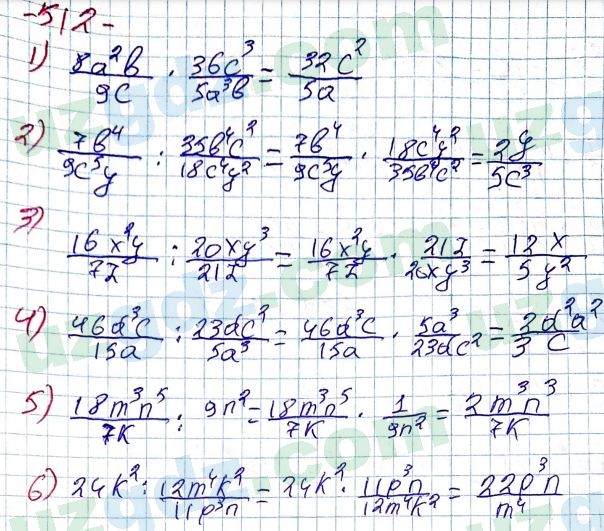 -512-
1) 8a²b/9c · 36c³/5a³b = 32c²/5a
2) 7b⁴/9c⁵y : 35b⁴c²/18c⁴y² = 7b⁴/9c⁵y · 18c⁴y²/35b⁴c² = 2y/5c³
3) 16x²y/7z : 20xy³/21z = 16x²y/7z · 21z/20xy³ = 12x/5y²
4) 46d³c/15a : 23dc²/5a³ = 46d³c/15a · 5a³/23dc² = 2d²a²/3c
5) 18m³n⁵/7k : 9n² = 18m³n⁵/7k · 1/9n² = 2m³n³/7k
6) 24k² : 12m⁴k²/11p³n = 24k² · 11p³n/12m⁴k² = 22p³n/m⁴
uzgdz.com